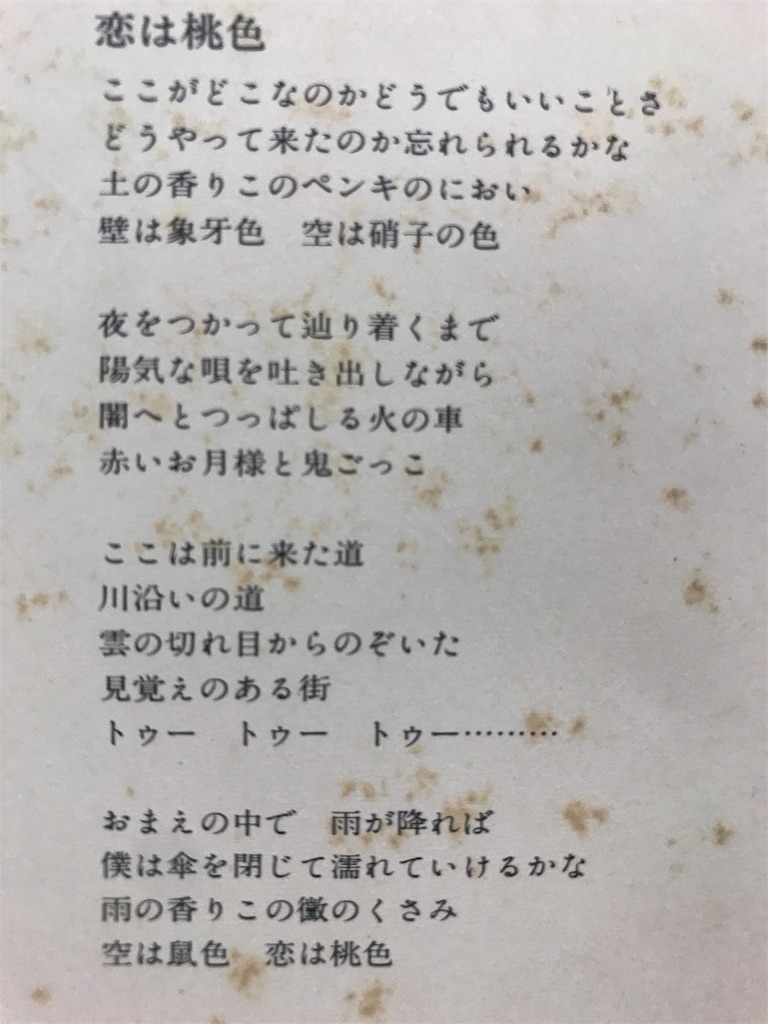 恋は桃色
ここがどこなのかどうでもいいことさ
どうやって来たのか忘れられるかな
土の香りこのペンキのにおい
壁は象牙色　空は硝子の色
夜をつかって辿り着くまで
陽気な唄を吐き出しながら
闇へとつっぱしる火の車
赤いお月様と鬼ごっこ
ここは前に来た道
川沿いの道
雲の切れ目からのぞいた
見覚えのある街
トゥー　トゥー　トゥー………
おまえの中で　雨が降れば
僕は傘を閉じて濡れていけるかな
雨の香りこの黴のくさみ
空は鼠色　恋は桃色